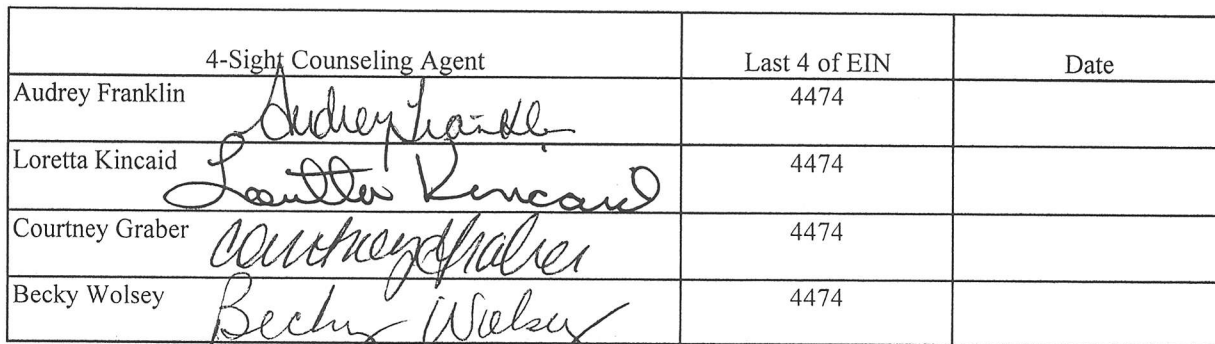 4-Sight Counseling Agent Last 4 of EIN Date
Audrey Franklin Audrey Franklin 4474
Loretta Kincaid Loretta Kincaid 4474
Courtney Graber Courtney Graber 4474
Becky Wolsey Becky Wolsey 4474